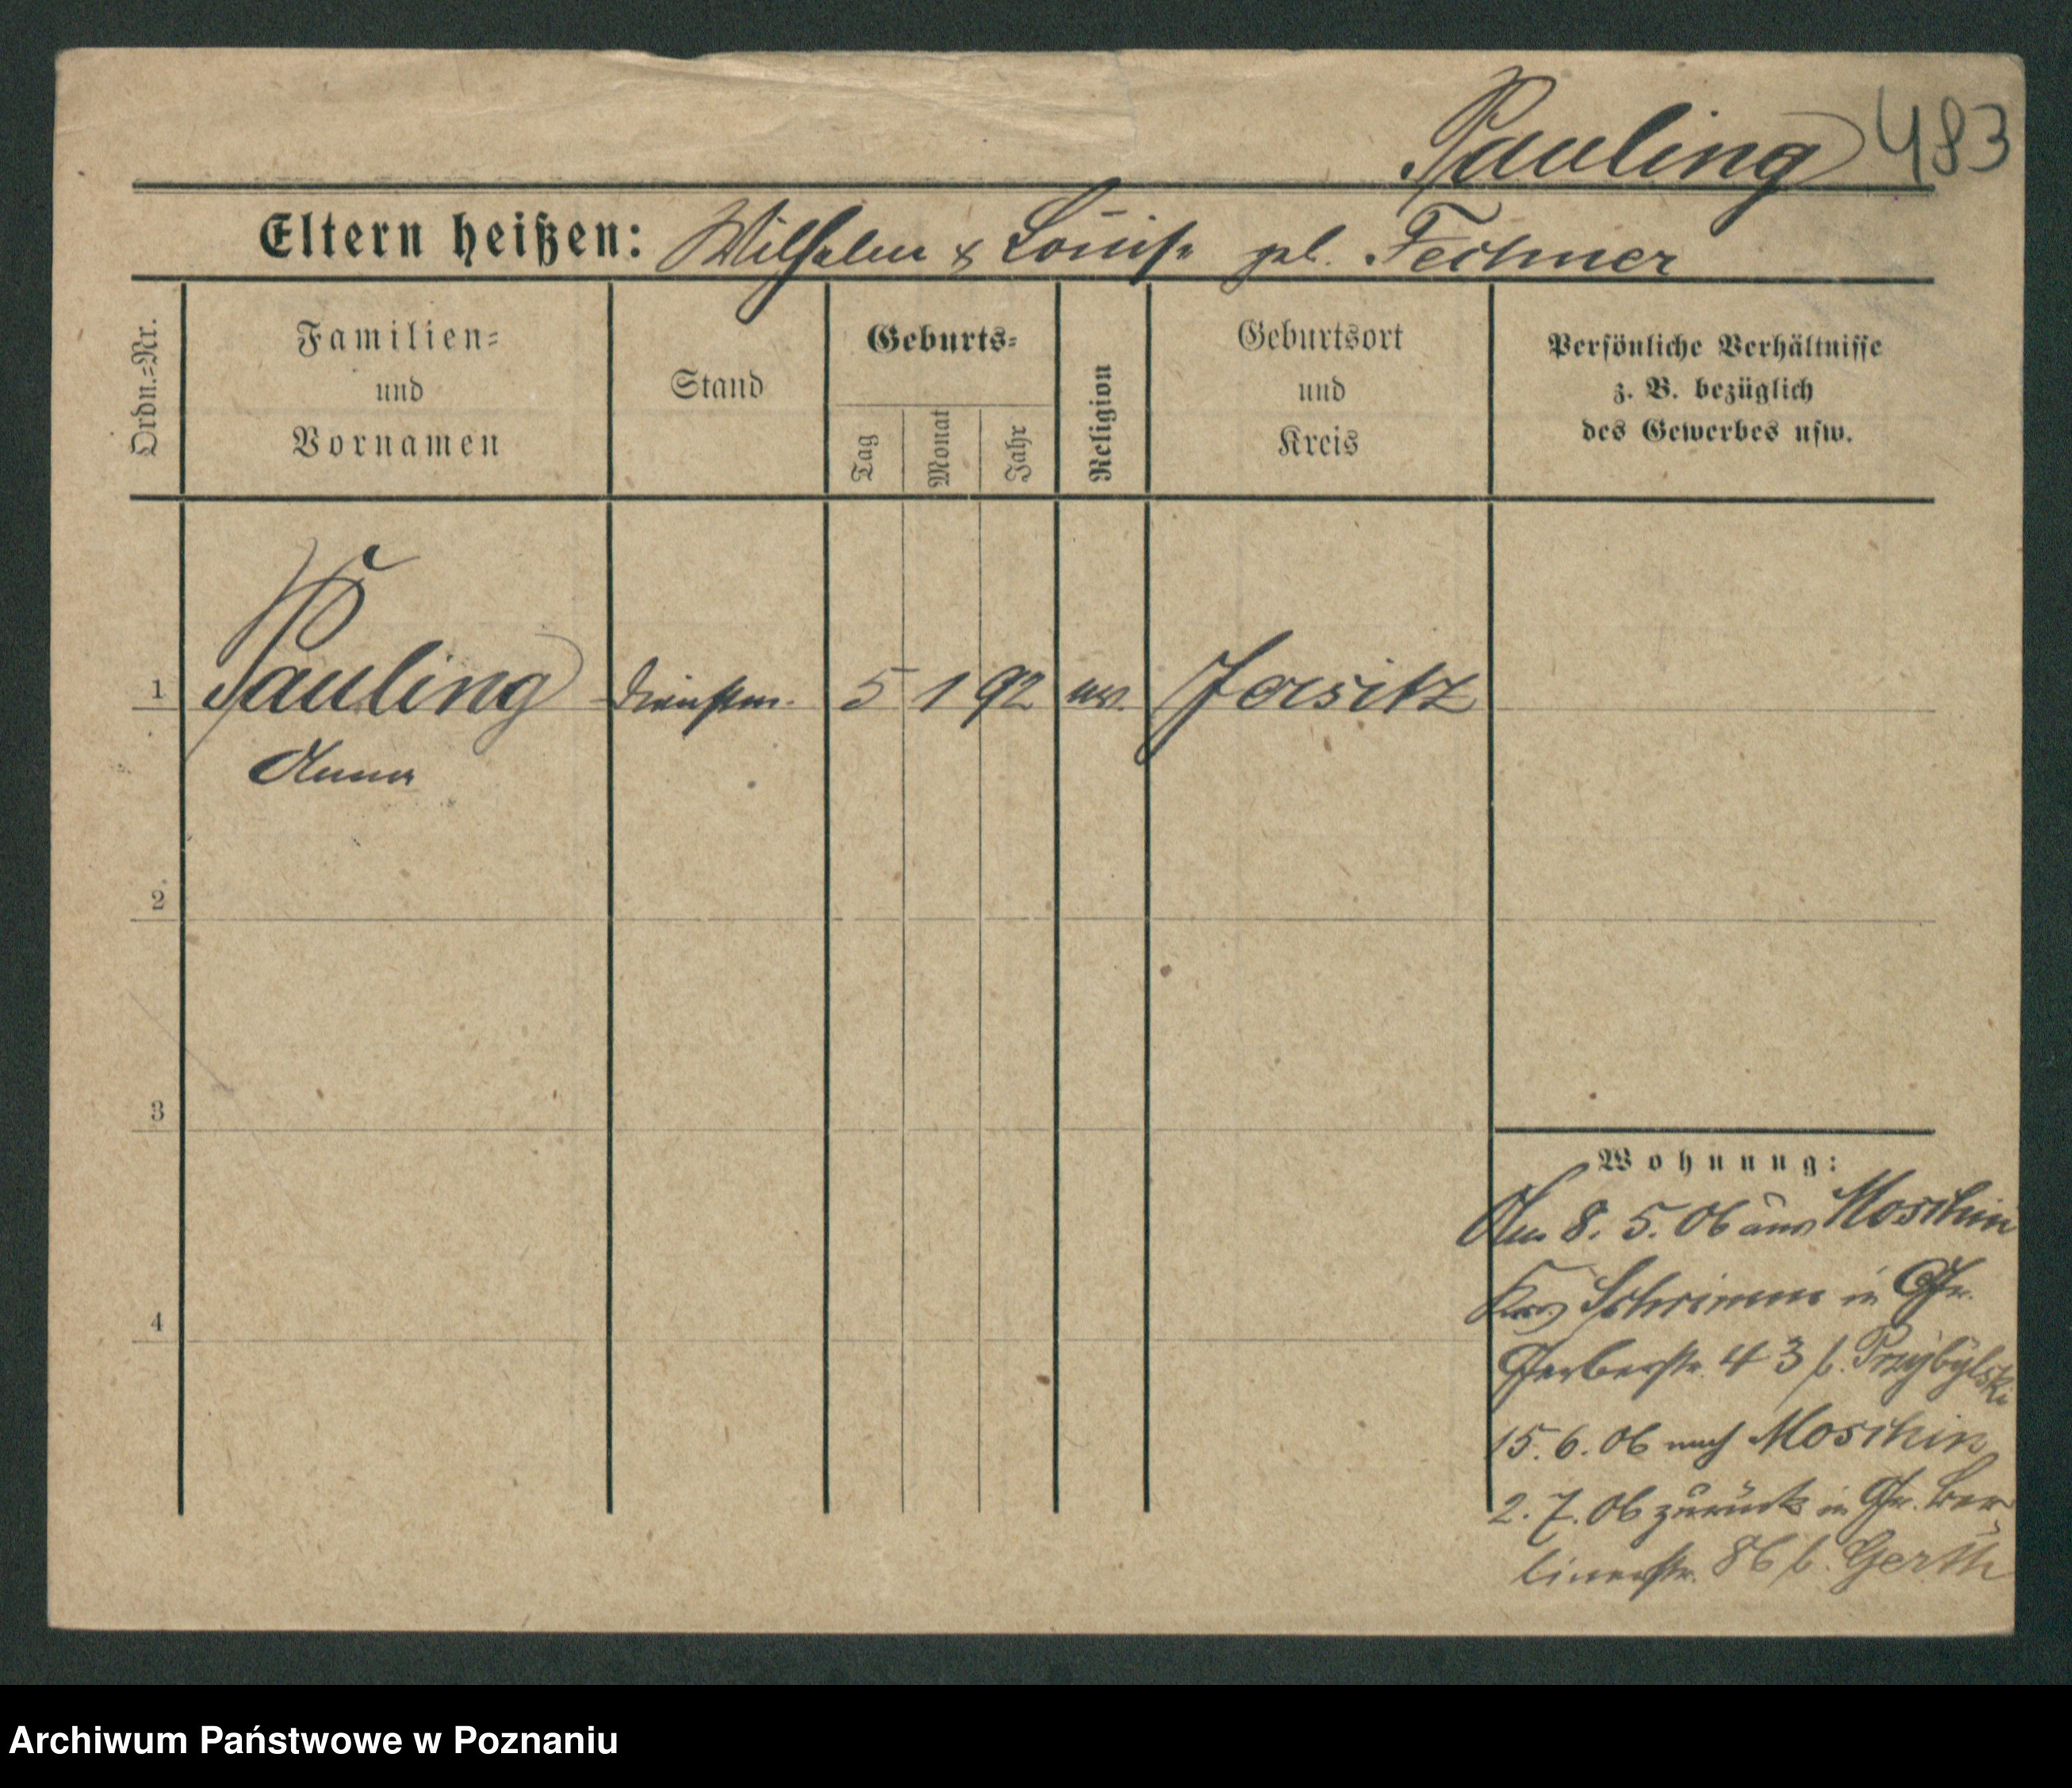 Pauling 483
Eltern heißen: Wilhelm & Louise geb. Fechner
Ordn.=Nr.
Familien=
und
Vornamen
Stand
Geburts=
Tag
Monat
Jahr
Religion
Geburtsort
und
Kreis
Persönliche Verhältnisse
z. B. bezüglich
des Gewerbes usw.
1 Pauling Dienstm. 5 1 92 ev.
Anna
2
3
4
Wohnung:
Am 8. 5. 06 aus Moschin
Krs Schrimm in Gr.
Gerberstr. 43 b. Przybylski
15. 6. 06 nach Moschin
2. 7. 06 zurück in Gr. Ber-
linerstr. 86 b. Gerth
Archiwum Państwowe w Poznaniu